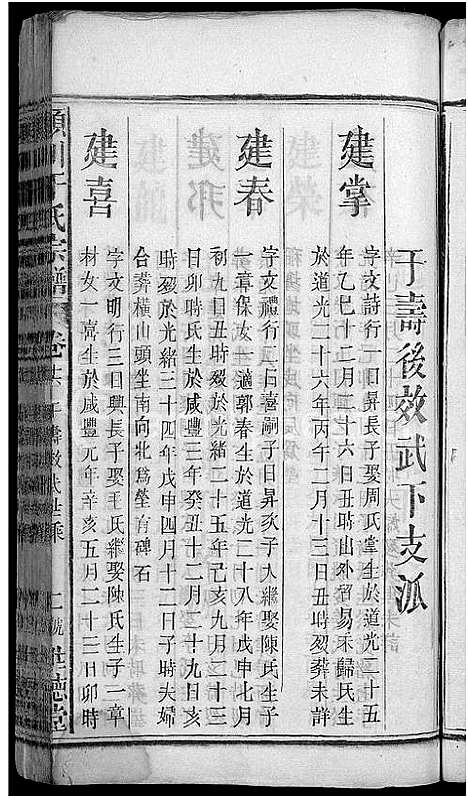 于壽後效武下支派
建掌
字文詩行一日昇長子娶周氏掌生於道光二十五
年乙巳十二月二十六日丑時山外貿易未歸氏生
於道光二十六年丙午二月十三日丑時歿葬未詳
建春
字文禮行二占喜嗣子日昇次子大繼娶陳氏生子
一章保女一適郭春生於道光二十八年戊申七月
初九日丑時歿於光緒二十五年己亥九月二十三
日卯時氏生於咸豐三年癸丑十二月二十九日亥
時歿於光緒三十四年戊申四月十二日子時夫婦
合葬橫山頭坐南向北爲塋有碑石
建喜
字文明行三日興長子娶王氏繼娶陳氏生子一章
材女一喜生於咸豐元年辛亥五月二十三日卯時
潁川于氏宗譜
卷 于壽效武世乘
二號 世德堂